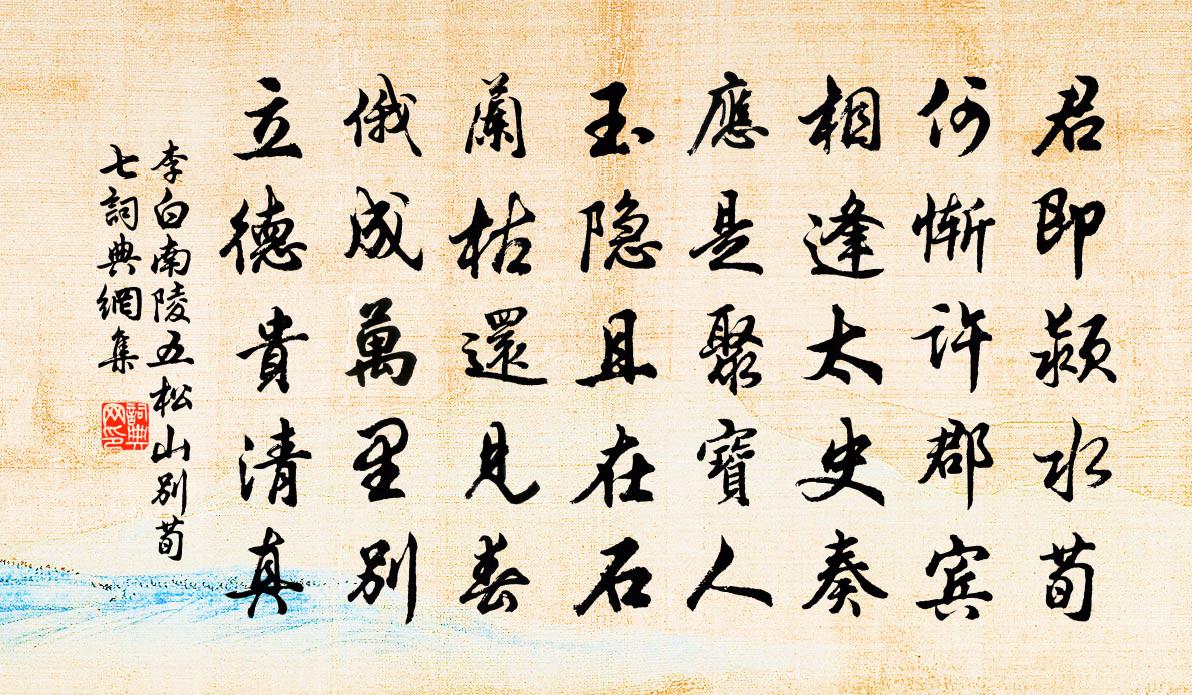 君即潁水荀
何慚許郡賓
相逢太史奏
應是聚寶人
玉隐且在石
蘭枯還見春
俄成萬里別
立德貴清真
李白南陵五松山別荀
七詞典網集
詞典
网印